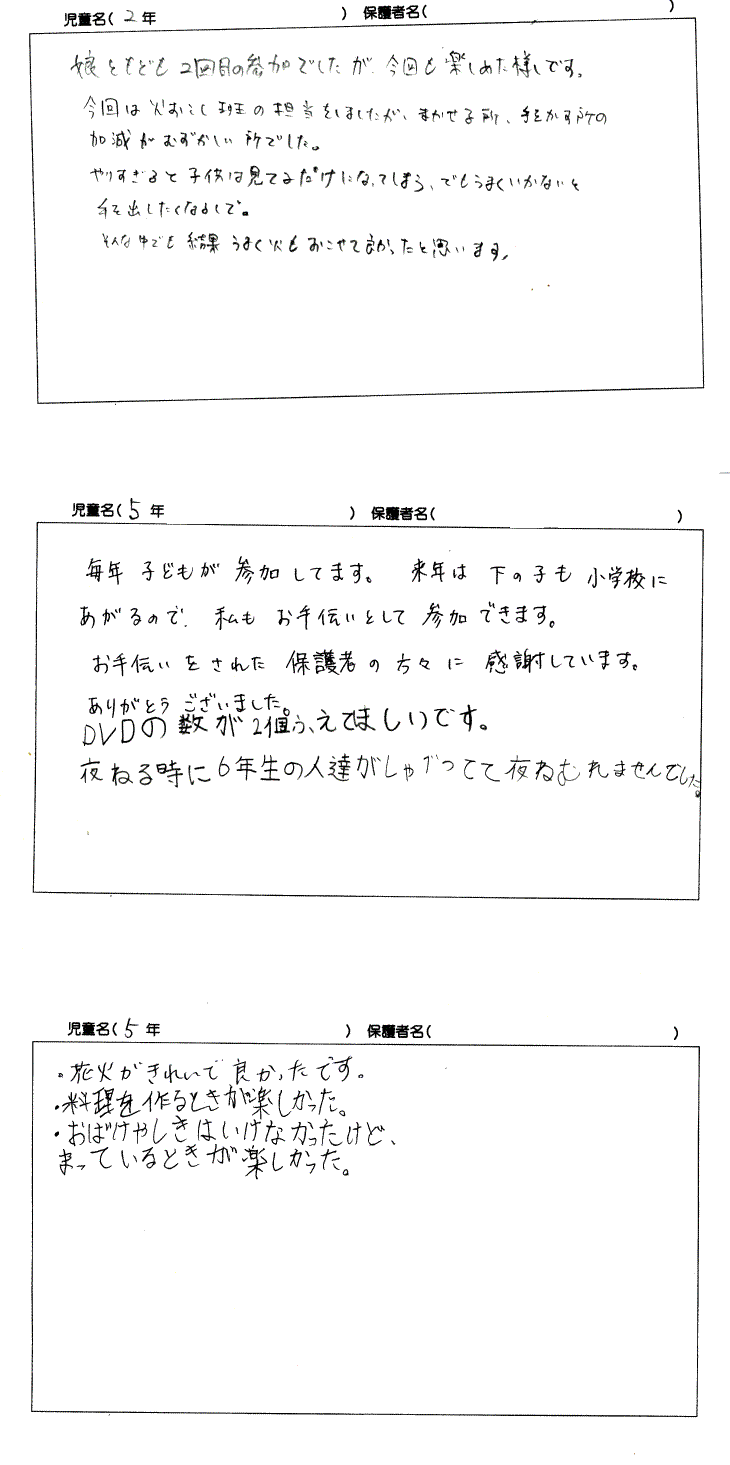 児童名( 2 年 ) 保護者名( )
娘ともども 2回目の参加でしたが、今回も楽しめた様です。
今回は火おこし班の担当をしましたが、まかせる所、手をかす所の
加減がむずかしい所でした。
やりすぎると子供は見てるだけになってしまう、でもうまくいかないと
手を出したくなるしで。
そんな中でも結果うまく火もおこせて良かったと思います。
児童名( 5 年 ) 保護者名( )
毎年 子どもが 参加 してます。 来年は 下の子も 小学校に
あがるので、私も お手伝いとして 参加 できます。
お手伝いをされた 保護者の方々に 感謝しています。
ありがとう ございました。
DVDの数が2個ふえてほしいです。
夜ねる時に6年生の人達がしゃべってて夜ねむれませんでした。
児童名( 5 年 ) 保護者名( )
・花火がきれいで良かったです。
・料理を作るときが楽しかった。
・おばけやしきはいけなかったけど、
まっているときが楽しかった。